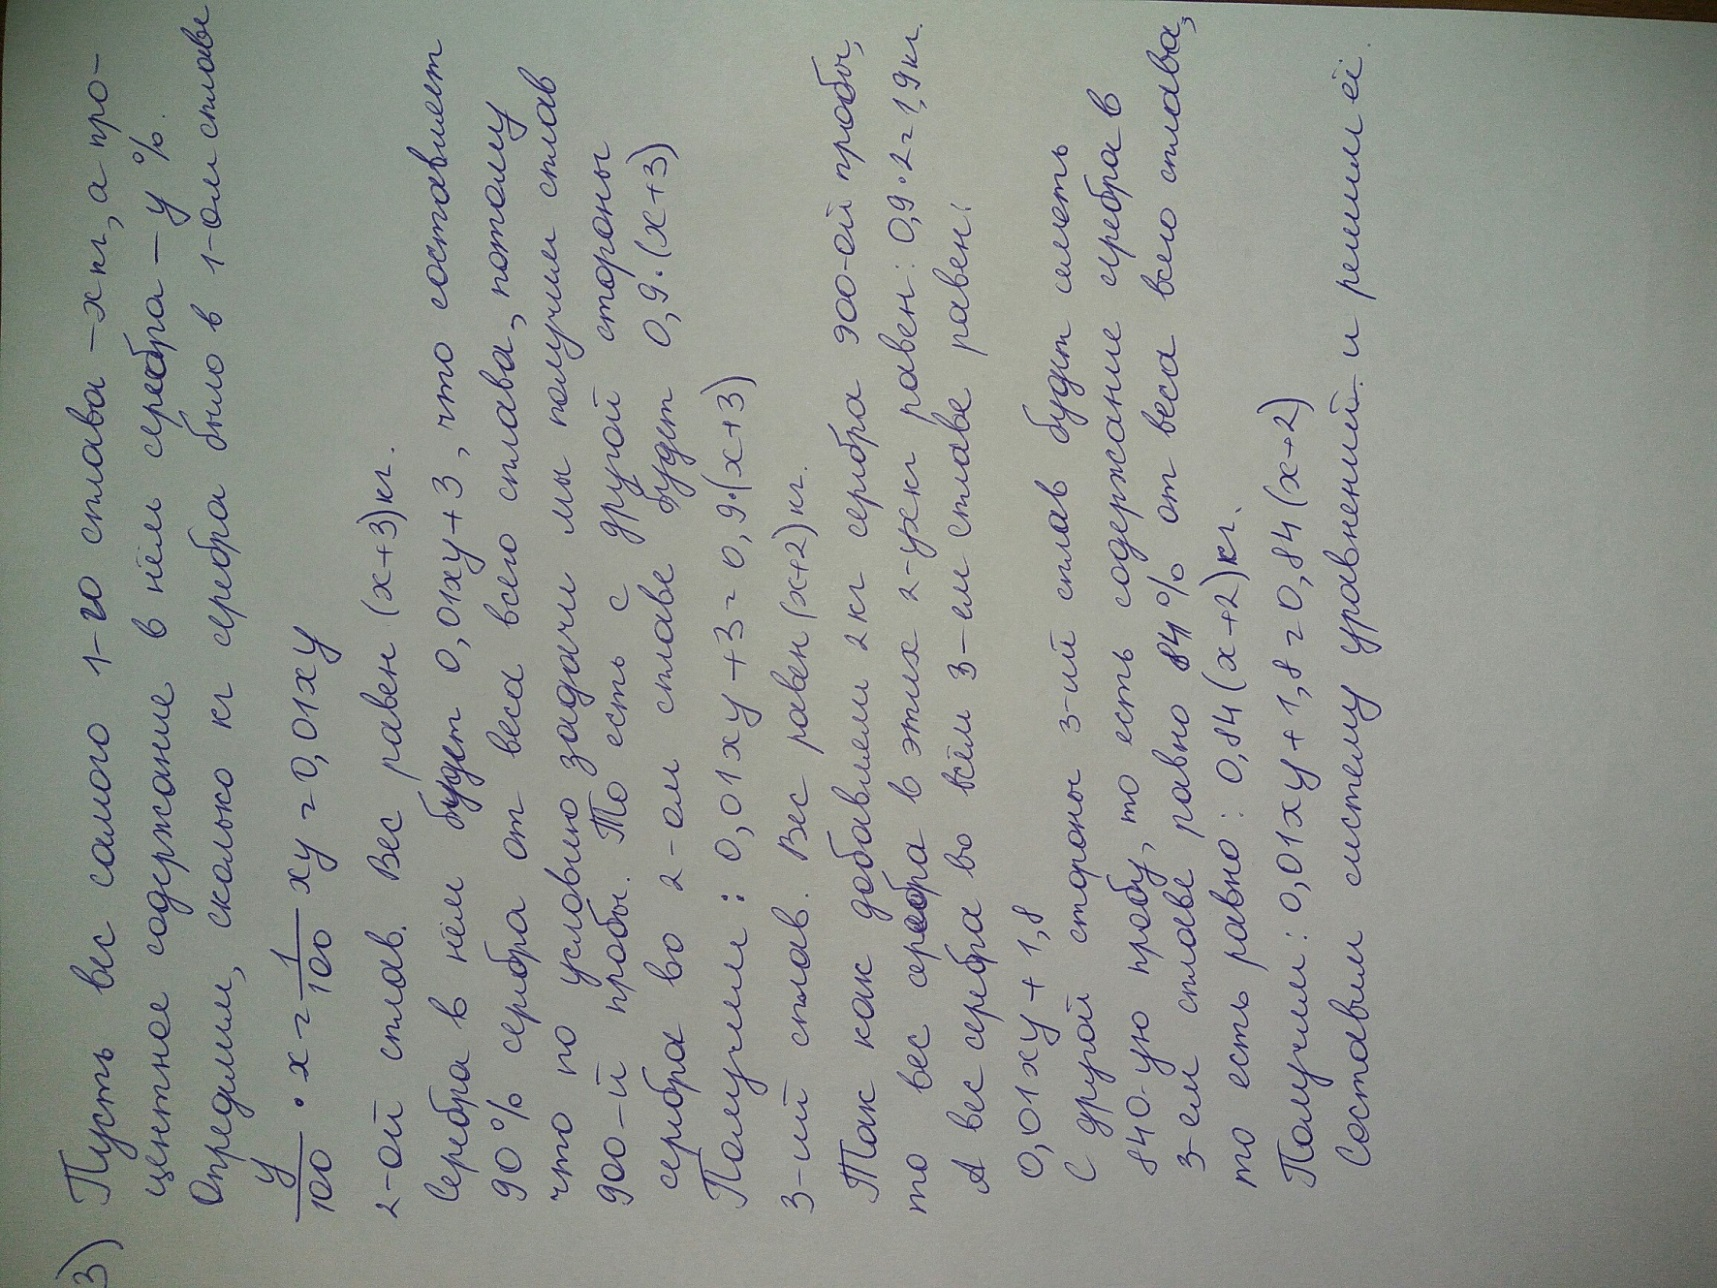 3) Пусть вес самого 1-го сплава – x кг, а про-
центное содержание в нём серебра – y %.
Определим, сколько кг серебра было в 1-ом сплаве
y/100 · x = 1/100 xy = 0,01xy
2-ой сплав. Вес равен (x+3)кг.
Серебра в нём будет 0,01xy+3, что составляет
90% серебра от веса всего сплава, потому
что по условию задачи мы получим сплав
900-й пробы. То есть с другой стороны
серебра во 2-ом сплаве будет 0,9·(x+3)
Получим: 0,01xy+3=0,9·(x+3)
3-ий сплав. Вес равен (x+2)кг.
Так как добавляем 2кг серебра 900-ой пробы,
то вес серебра в этих 2-ух кг равен: 0,9·2=1,9кг.
А вес серебра во всём 3-ем сплаве равен:
0,01xy+1,8
С другой стороны 3-ий сплав будет иметь
840-ую пробу, то есть содержание серебра в
3-ем сплаве равно 84% от веса всего сплава,
то есть равно: 0,84(x+2)кг.
Получим: 0,01xy+1,8=0,84(x+2)
Составим систему уравнений и решим её.